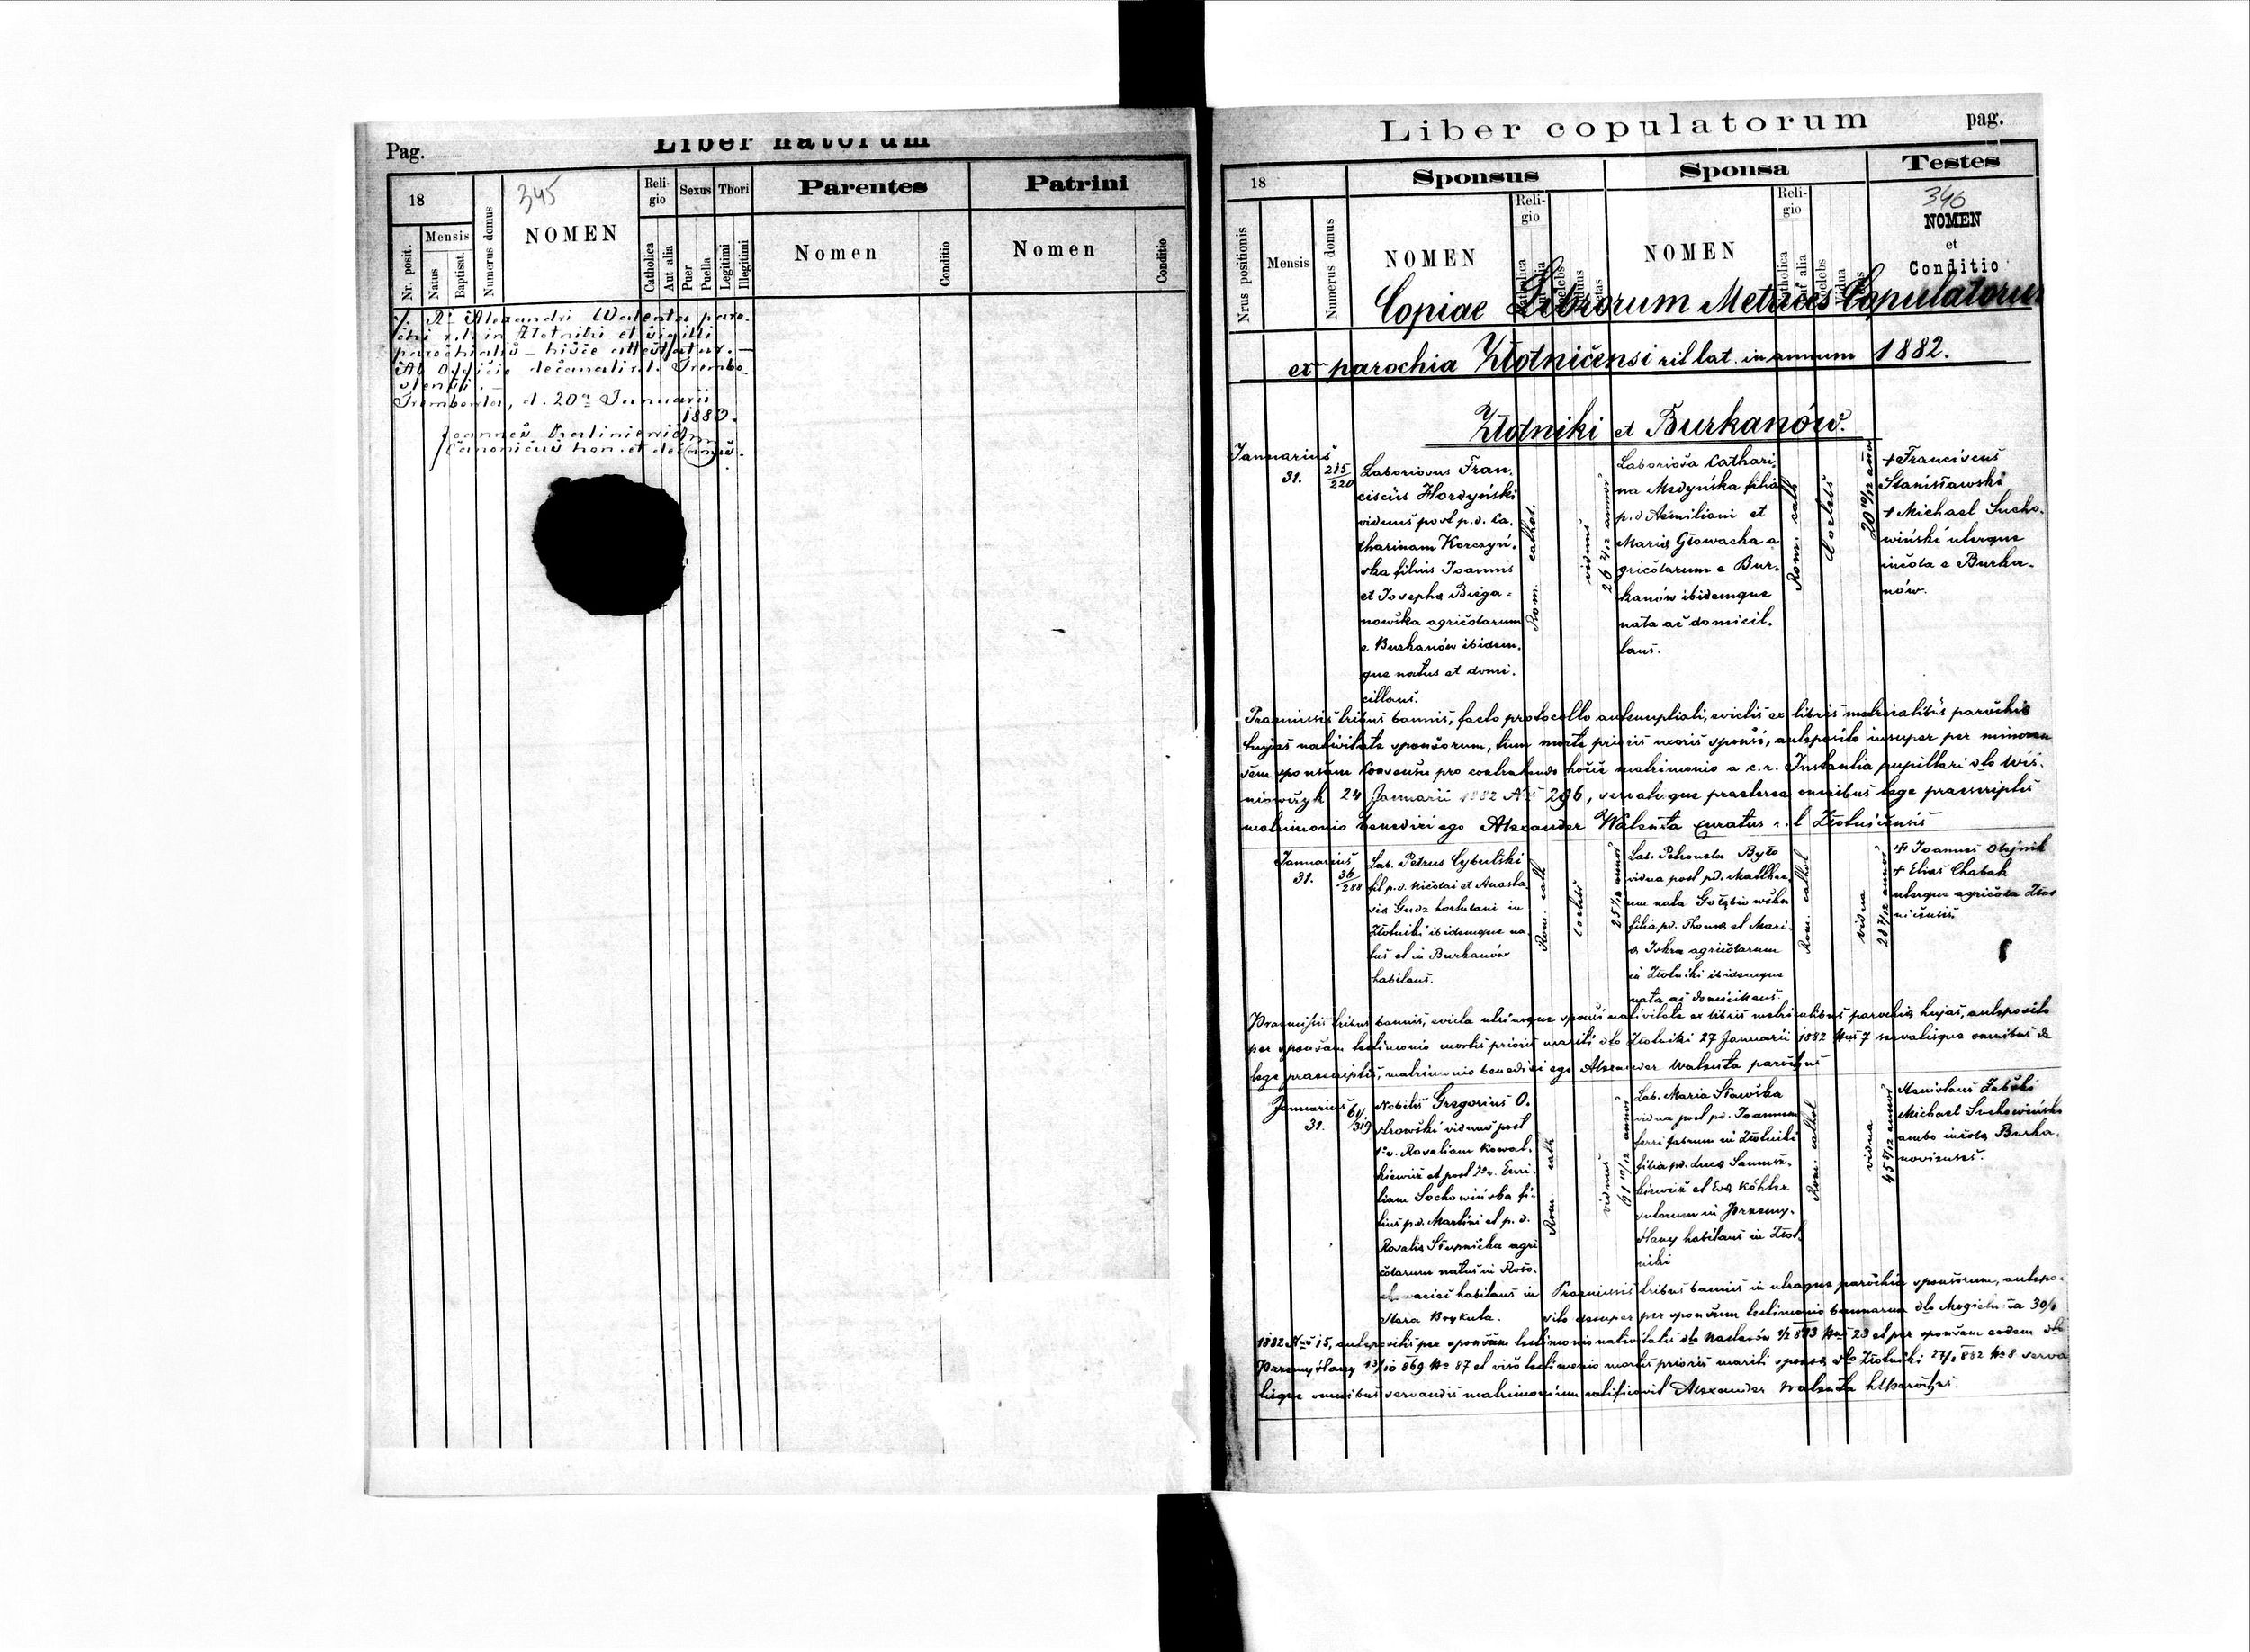 Pag.
Liber natorum
18
Nr. posit.
Mensis
Natus
Baptisat.
Numerus domus
345
NOMEN
Religio
Catholica
Aut alia
Sexus
Puer
Puella
Thori
Legitimi
Illegitimi
Parentes
Nomen
Conditio
Patrini
Nomen
Conditio
Alexandri Walenta paro-
chi r. l. in Złotniki et sigilli
parochialis – hisce attestatur. –
Ab Officio decanali r. l. Trembo-
vlensi. –
Trembovla, d. 20 Januarii
1883.
Joannes
Canonicus hon. et decanus.
Liber copulatorum
pag.
18
Nrus positionis
Mensis
Numerus domus
Sponsus
NOMEN
Reli-
gio
Sponsa
NOMEN
Reli-
gio
Testes
346
NOMEN
et
Conditio
Copiae Librorum Metrices Copulatorum
ex parochia Złotničensi rit lat. in annum 1882.
Złotniki et Burkanów.
Januarius
31.
215/220
Laboriosus Fran.
ciscus Hordyński
viduus post p.d. Ca.
tharinam Korczyń.
ska filius Joannis
et Josepha Biega-
nowska agricolarum
e Burkanów ibidem.
que natus et domi.
cilians.
Rom. cathol.
viduus
26 annor
Laboriosa Cathari.
na Medyńska filia
p.d Aemiliani et
Maria Głowacka a
gricolarum e Bur.
kanów ibidemque
nata ac domicil.
lans.
Rom. cath
Coelebs
20 10/12 anor
+ Franciscus
Stanisławski
+ Michael Sucho.
wiński uterque
incola e Burka.
nów.
Praemissis tribus bannis, facto protocollo antenuptiali, evictis ex libris metricalibus parochia
hujas nativitate sponsorum, tum morte prioris uxoris sponsi, anteposito insuper per minoren
sem sponsam consensu pro contrahendo hocce matrimonio a c.r. Instantia pupillari dto Wiś.
niowczyk 24 Januarii 1882 296, servatisque praeterea omnibus lege praescriptis
matrimonio benedixi ego Alexander Walenta curatus r. l Złotnicensis
Januarius
31.
36/288
Lab. Petrus Cybulski
fil p.d. Nicolai et Anasta
sia Gudz hortulani in
Złotniki ibidemque na
tus et in Burkanów
habitans.
Rom. cath
Coelebs
annor
Lab. Petronela Było
vidua post pd. Matthae
um nata Gołębiowska
filia pd. Thoma et Mari
a Iskra agricolarum
in Złotniki ibidemque
nata ac domicilians.
Rom. cathol
vidua
annor
+ Joannes Olejnik
+ Elias Chabak
uterque agricola Złot
nicensis
Praemissis tribus bannis, evicta utriusque sponsi nativitate ex libris metricalibus parochia hujas, anteposito
per sponsam testimonio mortis prioris mariti dto Złotniki 27 Januarii 1882 Nus 7 servatisque omnibus de
lege praescriptis, matrimonio benedixi ego Alexander Walenta parochus
Januarius
31.
64/319
Nobilis Gregorius O.
strowski viduus post
Rosaliam Kowal.
kiewicz et post
liam Sochowińska fi-
lius p.d. Martini et p.d.
Rosalia Słupnicka agri
colarum natus in Roso.
chowaciec habitans in
Stara Brykula.
Rom. cath
viduus
61 10/12 annor
Lab. Maria Sławska
vidua post pd. Joannem
ferri fabrum in Złotniki
filia pd. Luca
et Eva Köhler
sutorum in Przemy.
ślany habitans in Złot.
niki
Rom. cathol
vidua
45 annor
Stanislaus Zabski
Michael Suchowiński
ambo incola Burka.
novienses.
Praemissis tribus bannis in utraque parochia sponsorum, antepo.
sito per sponsum testimonio bannorum dto Mogielnica 30/1
1882 Nus 15, per sponsum testimonio nativitatis dto 23 et per sponsam eodem dto
Przemyślany 869 No 87 et viso testimonio mortis prioris mariti sponsa dto Złotniki 27/1 882 No 8 serva
tisque omnibus servandis matrimonium ratificavit Alexander Walenta parochus.